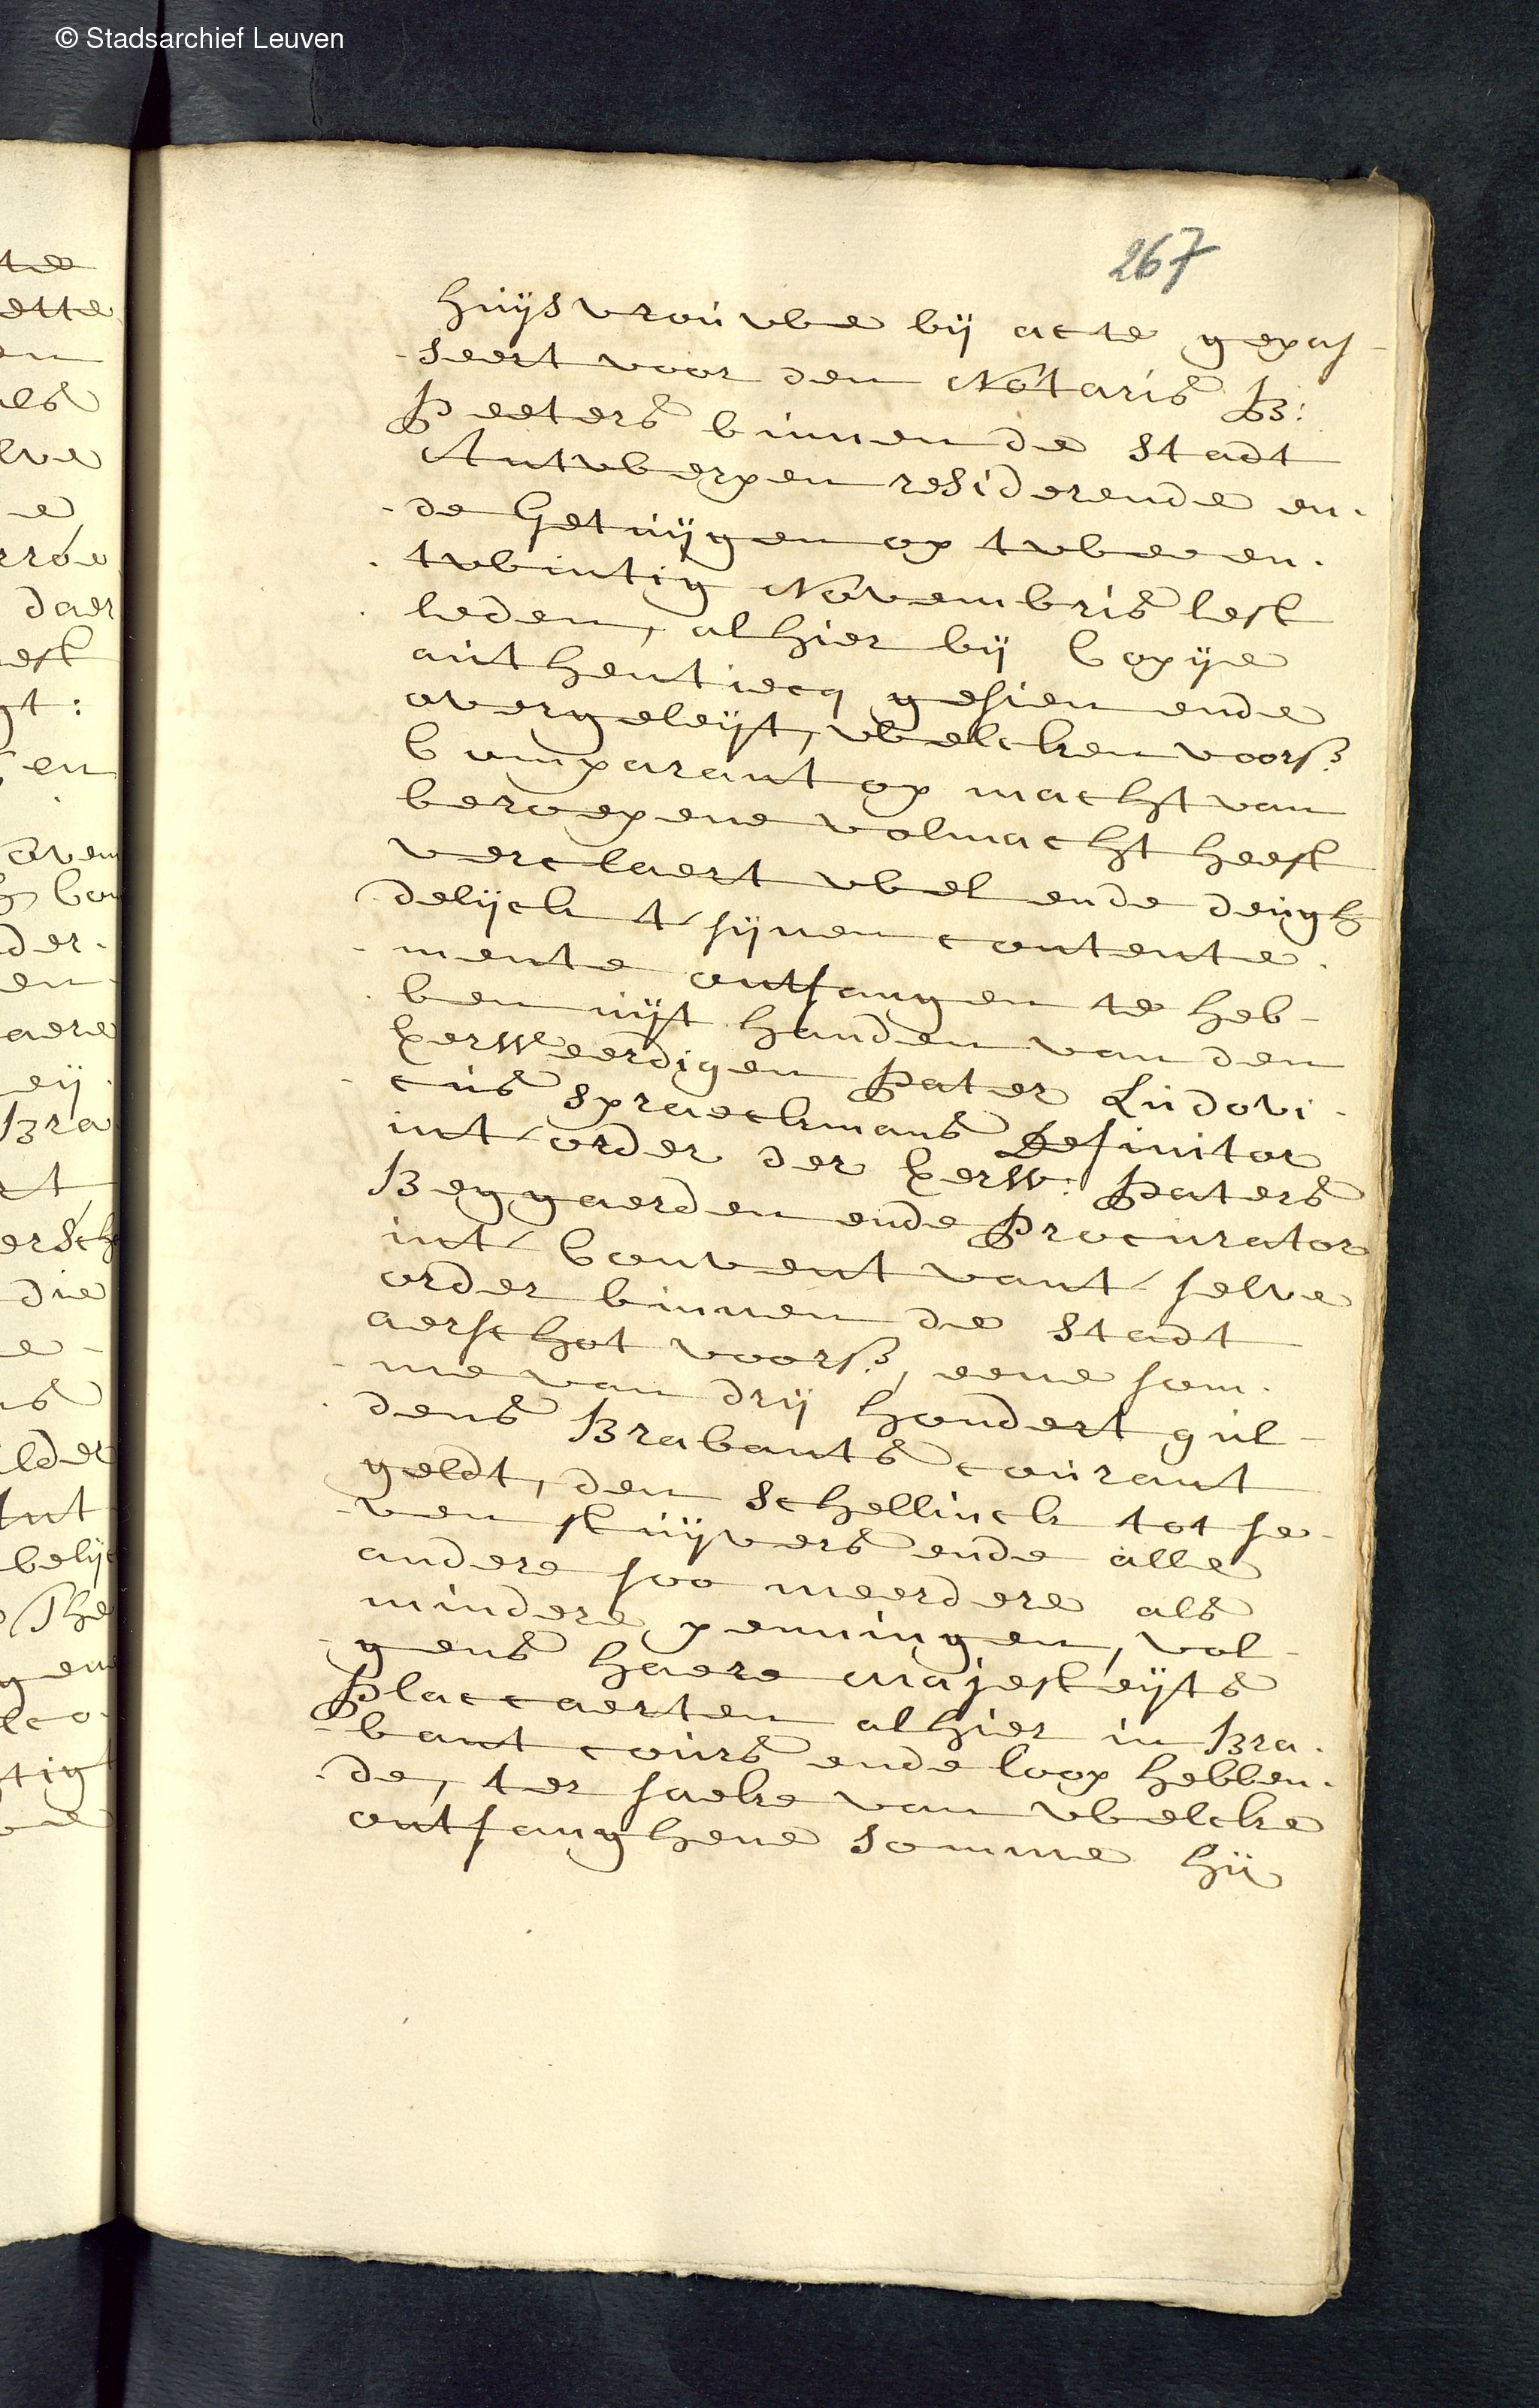 © Stadsarchief Leuven
267
huijsvrouwe bij acte gepas-
seert voor den Notaris B:
Peeters binnen de stadt
Antwerpen residerende en-
de getuijgen op twee en-
twintig Novembris lest
leden, alhier bij Copije
authentiecq gesien ende
overgeleijt, welcken voors:
Comparant op macht van
beroepene volmacht heeft
verclaert wel ende deugh
delijck t' sijnen contente-
mente ontfangen te heb-
ben uijt handen van den
Eerweerdigen Pater Ludovi-
cus Spraeckmans Definitor
int order der Eerw: Paters
Beggaerden ende Procurator
int Convent vant selve
order binnen de stadt
aerschot voors:, eene som-
me van drij hondert gul-
dens Brabants courant
geldt, den schellinck tot se-
ven stuijvers ende alle
andere soo meerdere als
mindere penningen, vol-
gens haere Majesteijts
Placcaerten alhier in Bra-
bant cours ende loop hebben-
de, ter saeke van welcke
ontfanghene somme hij